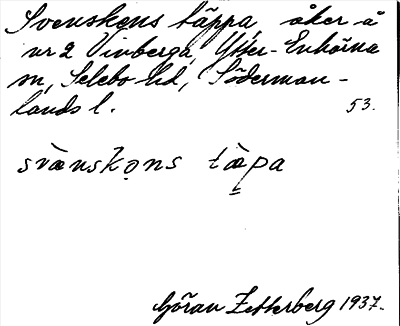 Svenskens täppa, åker å
nr 2 Vinberga, Ytter-Enhörna
sn, Selebo hd, Söderman-
lands l. 53.
svænskọns tæpa
Göran Zetterberg 1937.